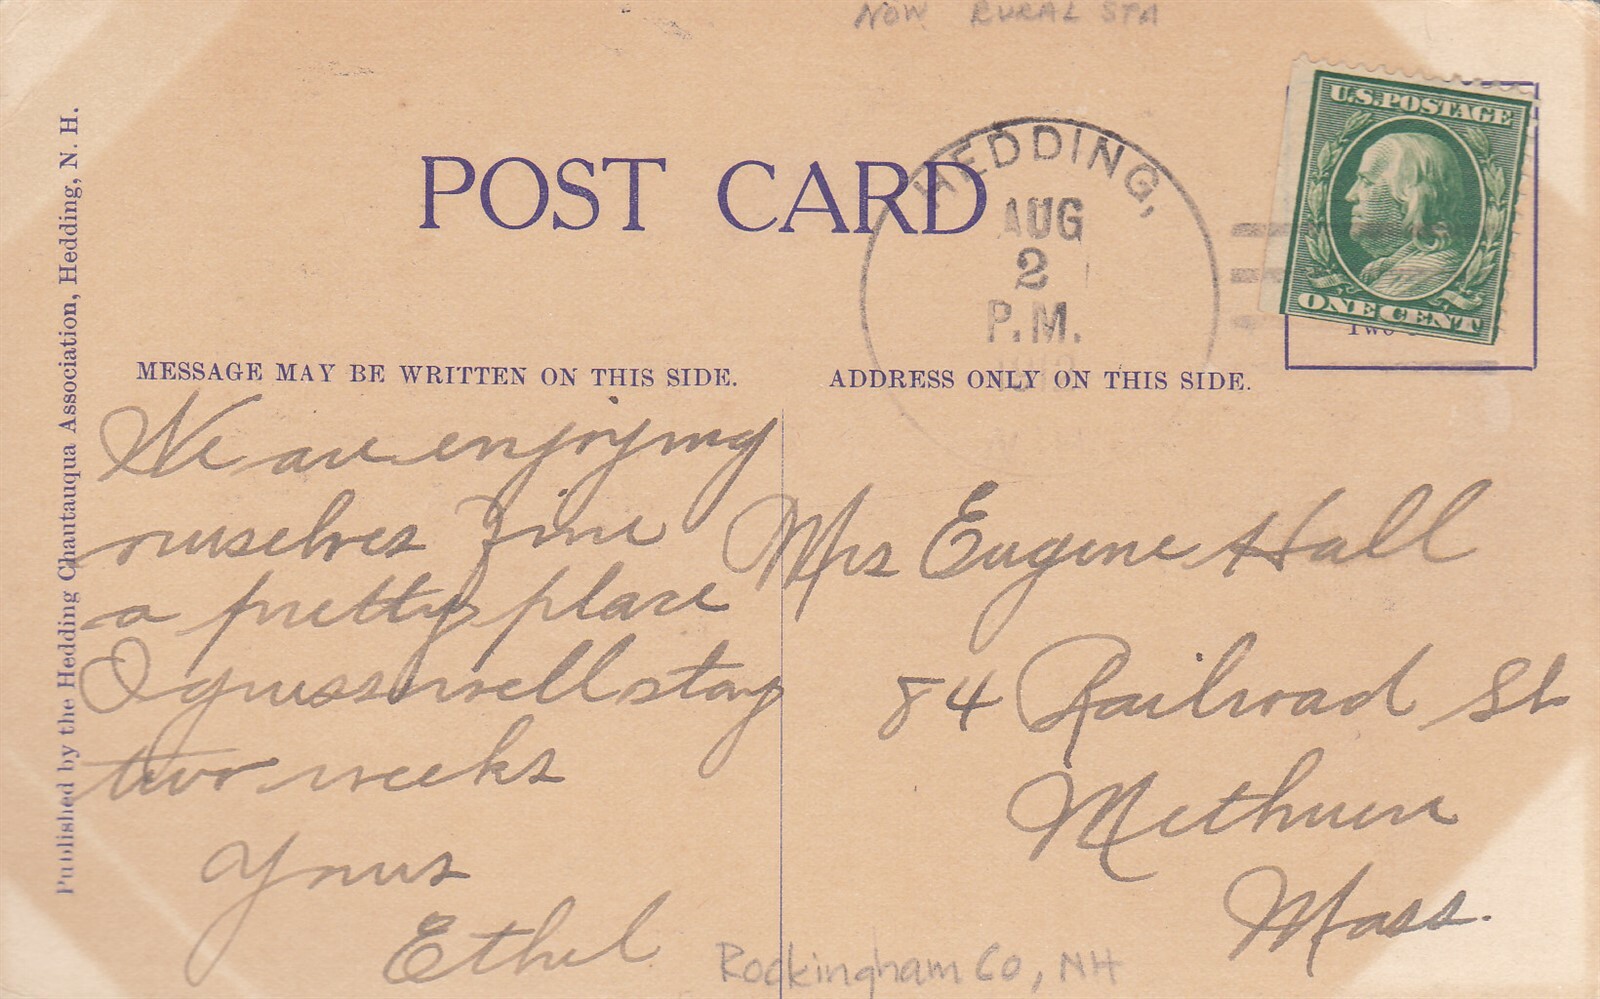 NOW RURAL STA
U.S. POSTAGE
ONE CENT
HEDDING,
AUG
2
P.M.
POST CARD
Published by the Hedding Chautauqua Association, Hedding, N. H.
MESSAGE MAY BE WRITTEN ON THIS SIDE.
We are enjoying
ourselves fine
a pretty place
I guess well stay
two weeks
Yours
Ethel
ADDRESS ONLY ON THIS SIDE.
Mrs Eugene Hall
84 Railroad St
Methuen
Mass.
Rockingham Co, NH